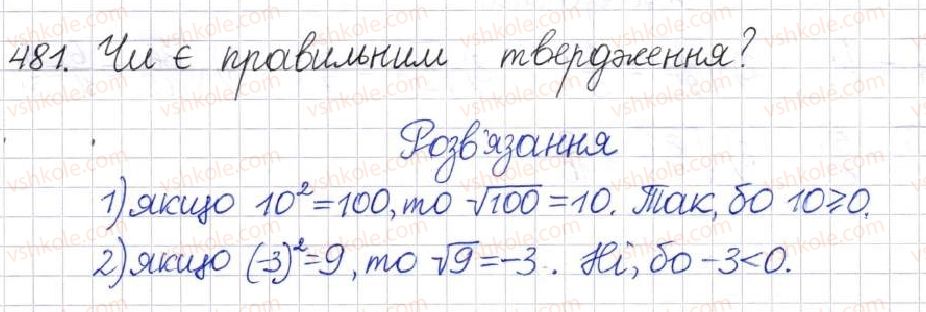 481. Чи є правильним твердження?
Розв'язання
1) якщо 10² = 100, то √100 = 10. Так, бо 10 ≥ 0.
2) якщо (-3)² = 9, то √9 = -3. Ні, бо -3 < 0.